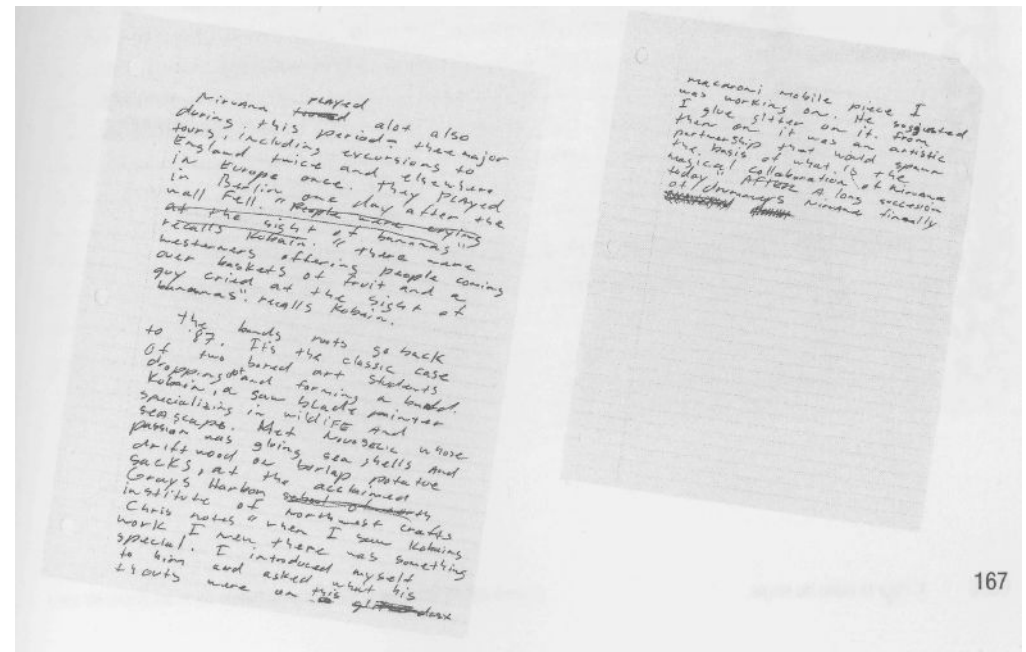 Nirvana PLAYED
toured alot also
during this period. three major
tours, including excursions to
England twice and elsewhere
in Europe once. They PLAYED
in Berlin one day after the
wall Fell. "People were crying
at the sight of bananas"
recalls Kobain. "there were
westerners offering people coming
over baskets of fruit and a
guy cried at the sight of
bananas". recalls Kobain.
The bands roots go back
to '87. It's the classic case
Of two bored art students
dropping out and forming a band.
Kobain, a saw blade painter
specializing in wildlife And
seascape. Met Novoselic whose
passion was gluing sea shells And
driftwood on burlap potatoe
sacks, at the acclaimed
Grays Harbor
institute of Northwest crafts
Chris notes "when I saw Kobains
work I new there was something
special. I introduced myself
to him and asked what his
thouts were on this
macaroni mobile piece I
was working on. He suggested
I glue glitter on it. From
then on it was an artistic
partnership that would spawn
the basis of what is the
magical collaboration of Nirvana
today" AFTER A long succession
of drummers Nirvana fineally
167